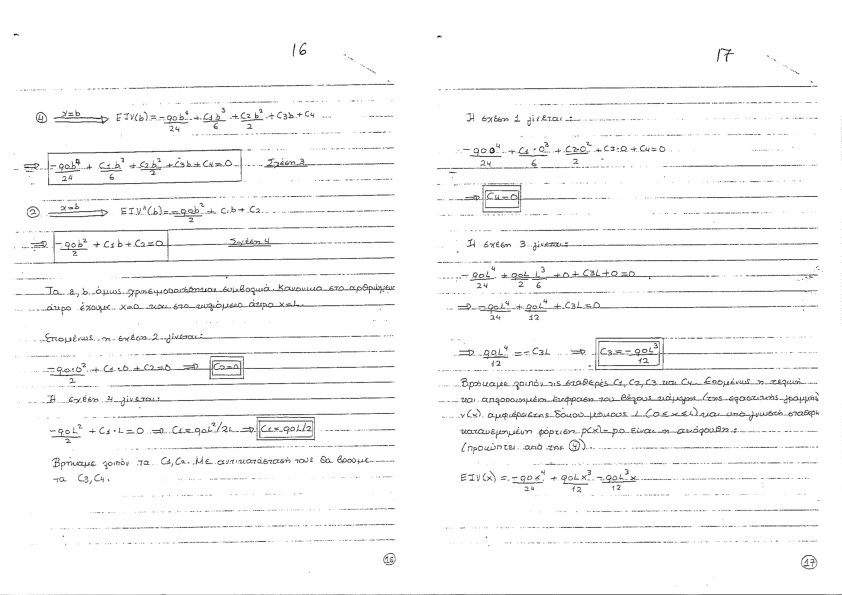 16
④ x=b ⟹ EIV(b)=-q0b⁴/24 + C1b³/6 + C2b²/2 + C3b + C4
⟹ -q0b⁴/24 + C1b³/6 + C2b²/2 + C3b + C4=0 Σχέση 3
② x=b ⟹ EIV"(b)=-q0b²/2 + C1b + C2
⟹ -q0b²/2 + C1b + C2=0 Σχέση 4
Τα a, b όμως χρησιμοποιούνται συμβολικά. Κανονικά στο αριστερό
άκρο έχουμε x=0 και στο άκρο x=L.
Επομένως η σχέση 2 γίνεται:
-q0·0²/2 + C1·0 + C2=0 ⟹ C2=0
Η σχέση 4 γίνεται:
-q0L²/2 + C1·L=0 ⟹ C1=q0L²/2L ⟹ C1=q0L/2
Βρήκαμε λοιπόν τα C1, C2. Με αντικατάστασή τους θα βρούμε
τα C3, C4.
16
17
Η σχέση 1 γίνεται:
-q0·0⁴/24 + C1·0³/6 + C2·0²/2 + C3·0 + C4=0
⟹ C4=0
Η σχέση 3 γίνεται:
-q0L⁴/24 + q0L/2 L³/6 + 0 + C3L + 0=0
⟹ -q0L⁴/24 + q0L⁴/12 + C3L=0
⟹ q0L⁴/12 = -C3L ⟹ C3=-q0L³/12
Βρήκαμε λοιπόν τις σταθερές C1, C2, C3 και C4. Επομένως η τελική
και απλοποιημένη έκφραση του βέλους κάμψης (της ελαστικής γραμμής)
v(x) αμφιέρειστης δοκού μήκους L (0≤x≤L) και υπό γνωστή σταθερή
κατανεμημένη φόρτιση p(x)=p0 είναι η ακόλουθη:
(προκύπτει από την ④)
EIV(x) = -q0x⁴/24 + q0Lx³/12 - q0L³x/12
17